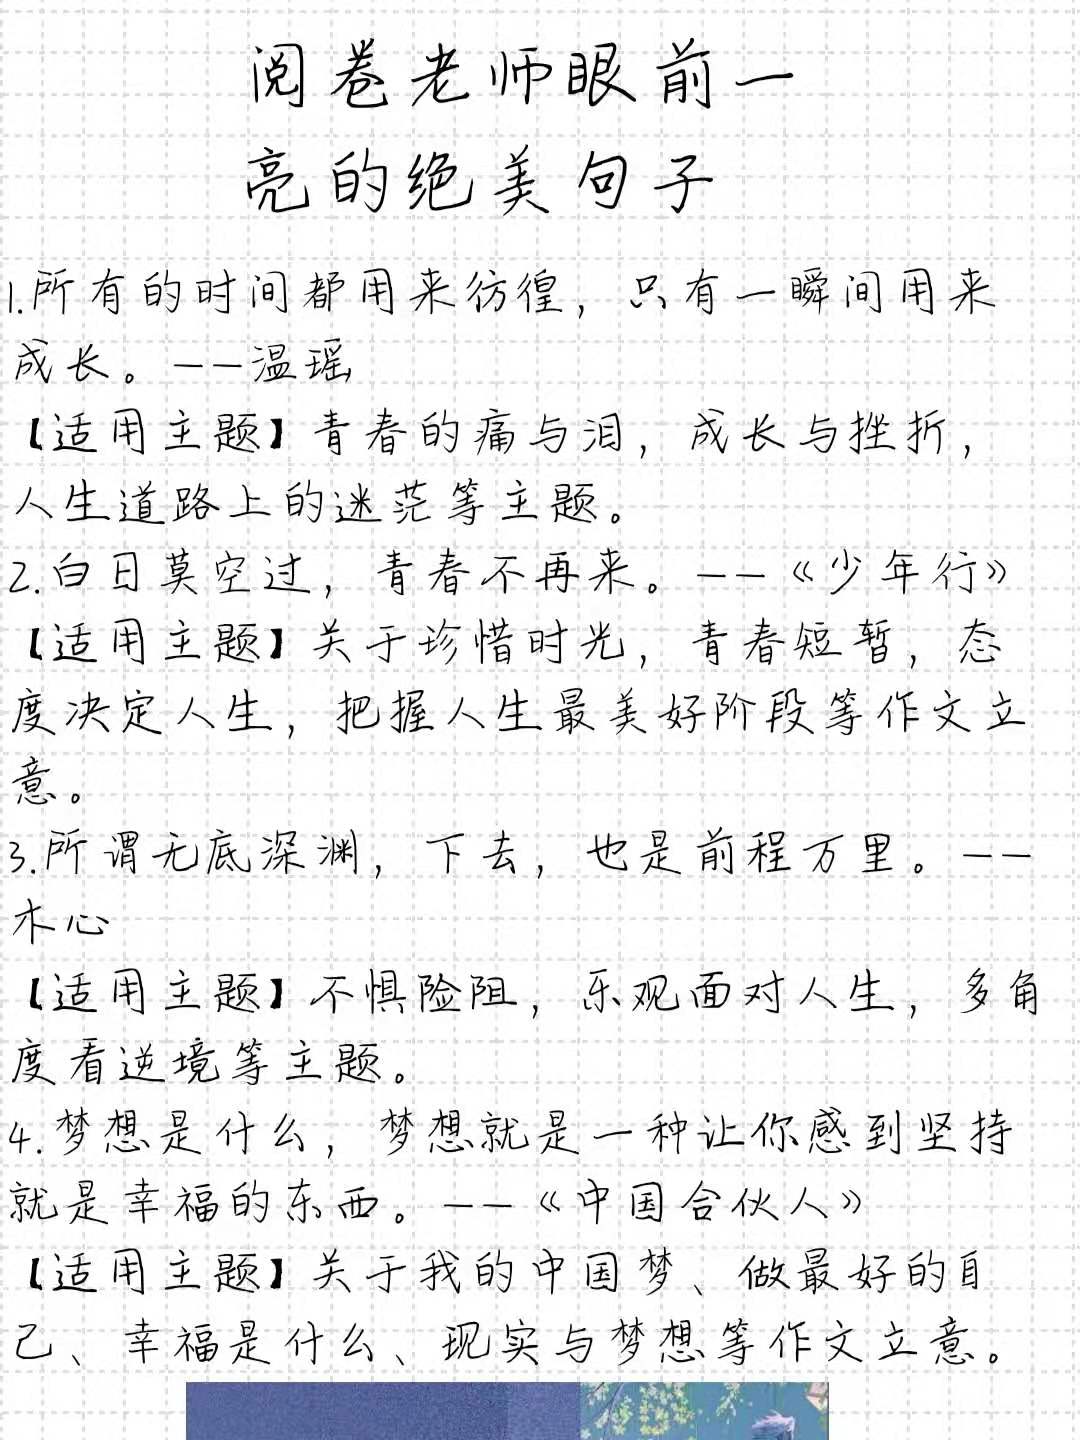 阅卷老师眼前一
亮的绝美句子
1.所有的时间都用来彷徨，只有一瞬间用来
成长。——温瑶
【适用主题】青春的痛与泪，成长与挫折，
人生道路上的迷茫等主题。
2.白日莫空过，青春不再来。——《少年行》
【适用主题】关于珍惜时光，青春短暂，态
度决定人生，把握人生最美好阶段等作文立
意。
3.所谓无底深渊，下去，也是前程万里。——
木心
【适用主题】不惧险阻，乐观面对人生，多角
度看逆境等主题。
4.梦想是什么，梦想就是一种让你感到坚持
就是幸福的东西。——《中国合伙人》
【适用主题】关于我的中国梦、做最好的自
己、幸福是什么、现实与梦想等作文立意。